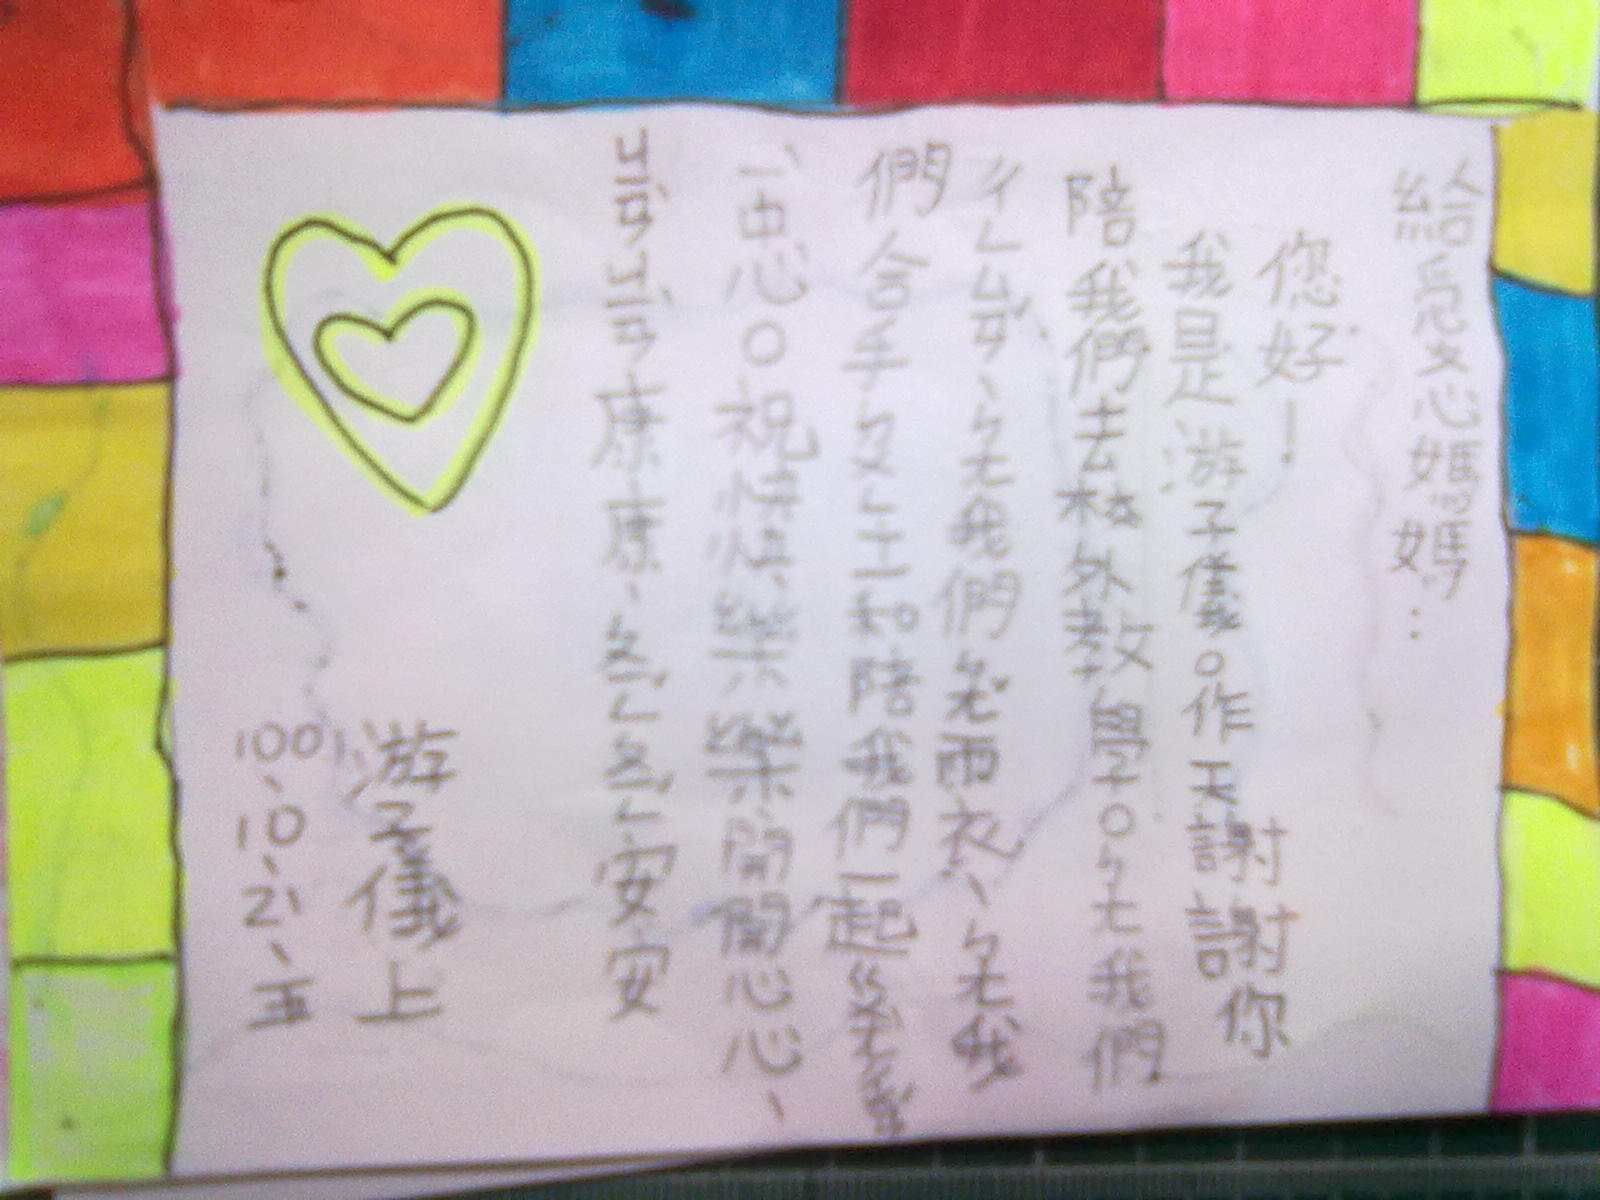 給愛心媽媽：
您好！
我是游子儀。作天謝謝你
陪我們去校外教學。ㄅㄤ我們
ㄔㄥㄙㄢˇ、ㄅㄤ我們ㄅㄤ雨衣、ㄅㄤ我
們合手ㄆㄥ和陪我們一起
一中心。祝快快樂樂開開心心、
ㄐㄧㄢˋㄐㄧㄢˋ康康、ㄆㄧㄥˊㄆㄧㄥˊ安安
游子儀上
100、10、21、五